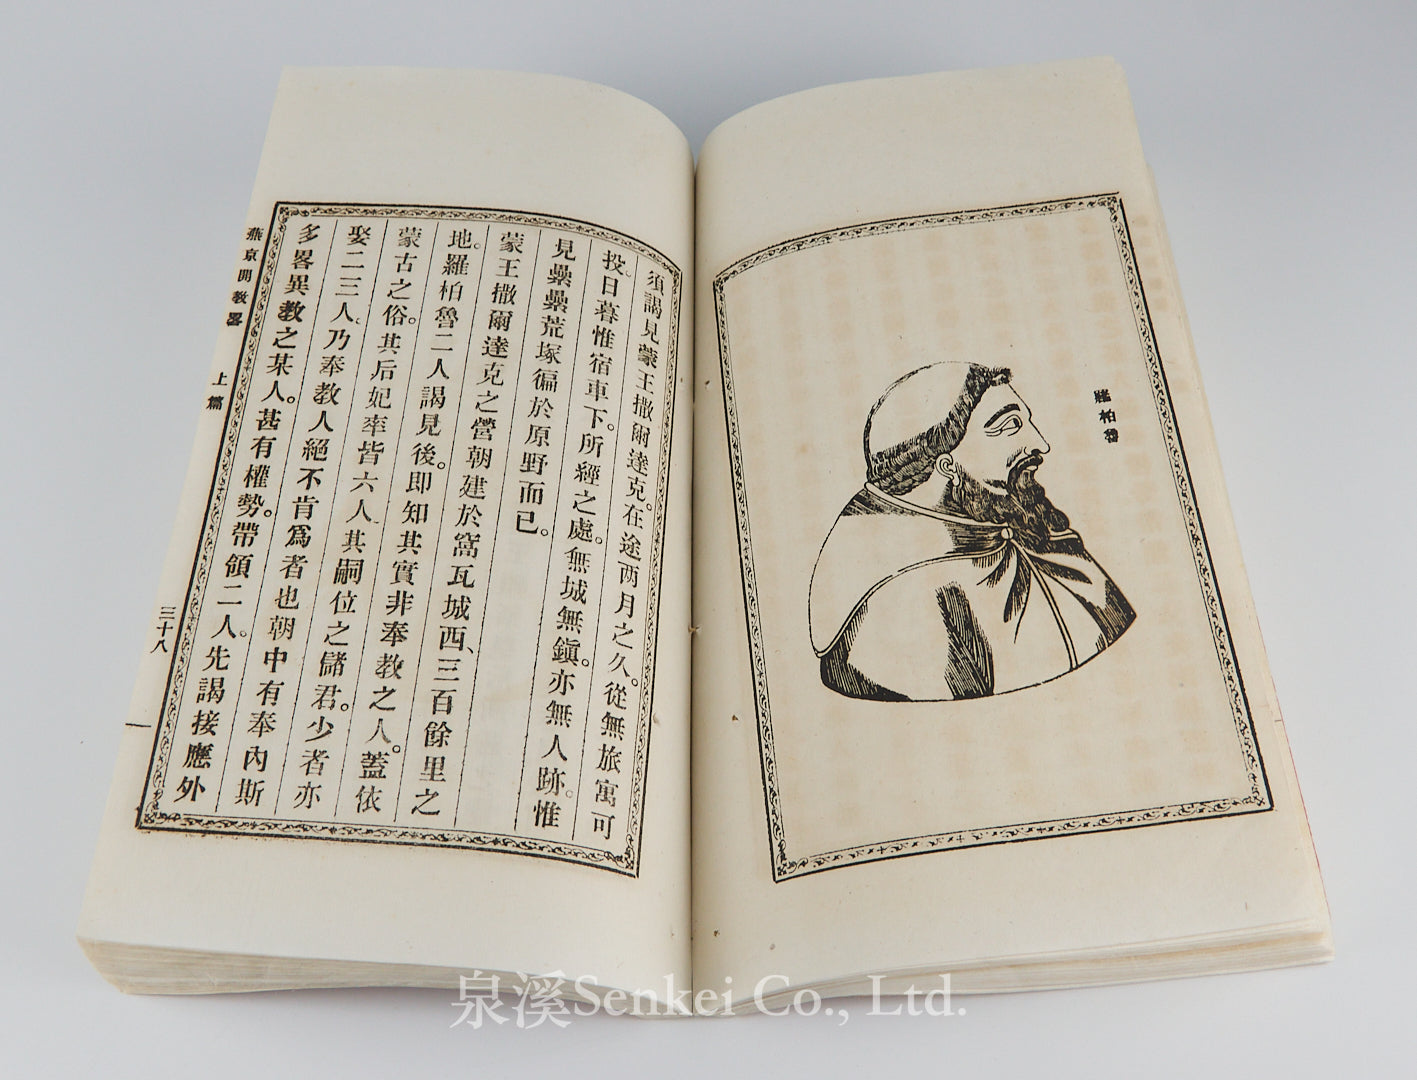 羅柏魯
須謁見蒙王撒爾達克。在途两月之久。從無旅寓可
投。日暮惟宿車下。所經之處。無城無鎭。亦無人跡。惟
見纍纍荒塚徧於原野而已。
蒙王撒爾達克之營朝建於窩瓦城西、三百餘里之
地。羅柏魯二人謁見後。即知其實非奉教之人。蓋依
蒙古之俗。其后妃率皆六人其嗣位之儲君。少者亦
娶二三人。乃奉教人絕不肯爲者也朝中有奉內斯
多畧異教之某人。甚有權勢。帶領二人。先謁接應外
燕京開教畧
上篇
三十八
泉溪Senkei Co., Ltd.